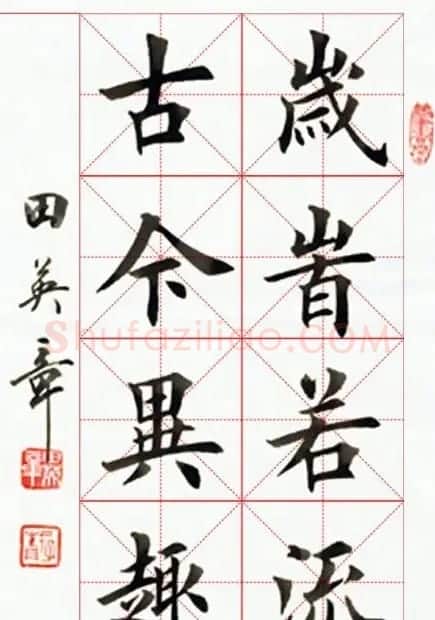 歲旹若流
古今異趣
田英章
Shufaziliao.COM